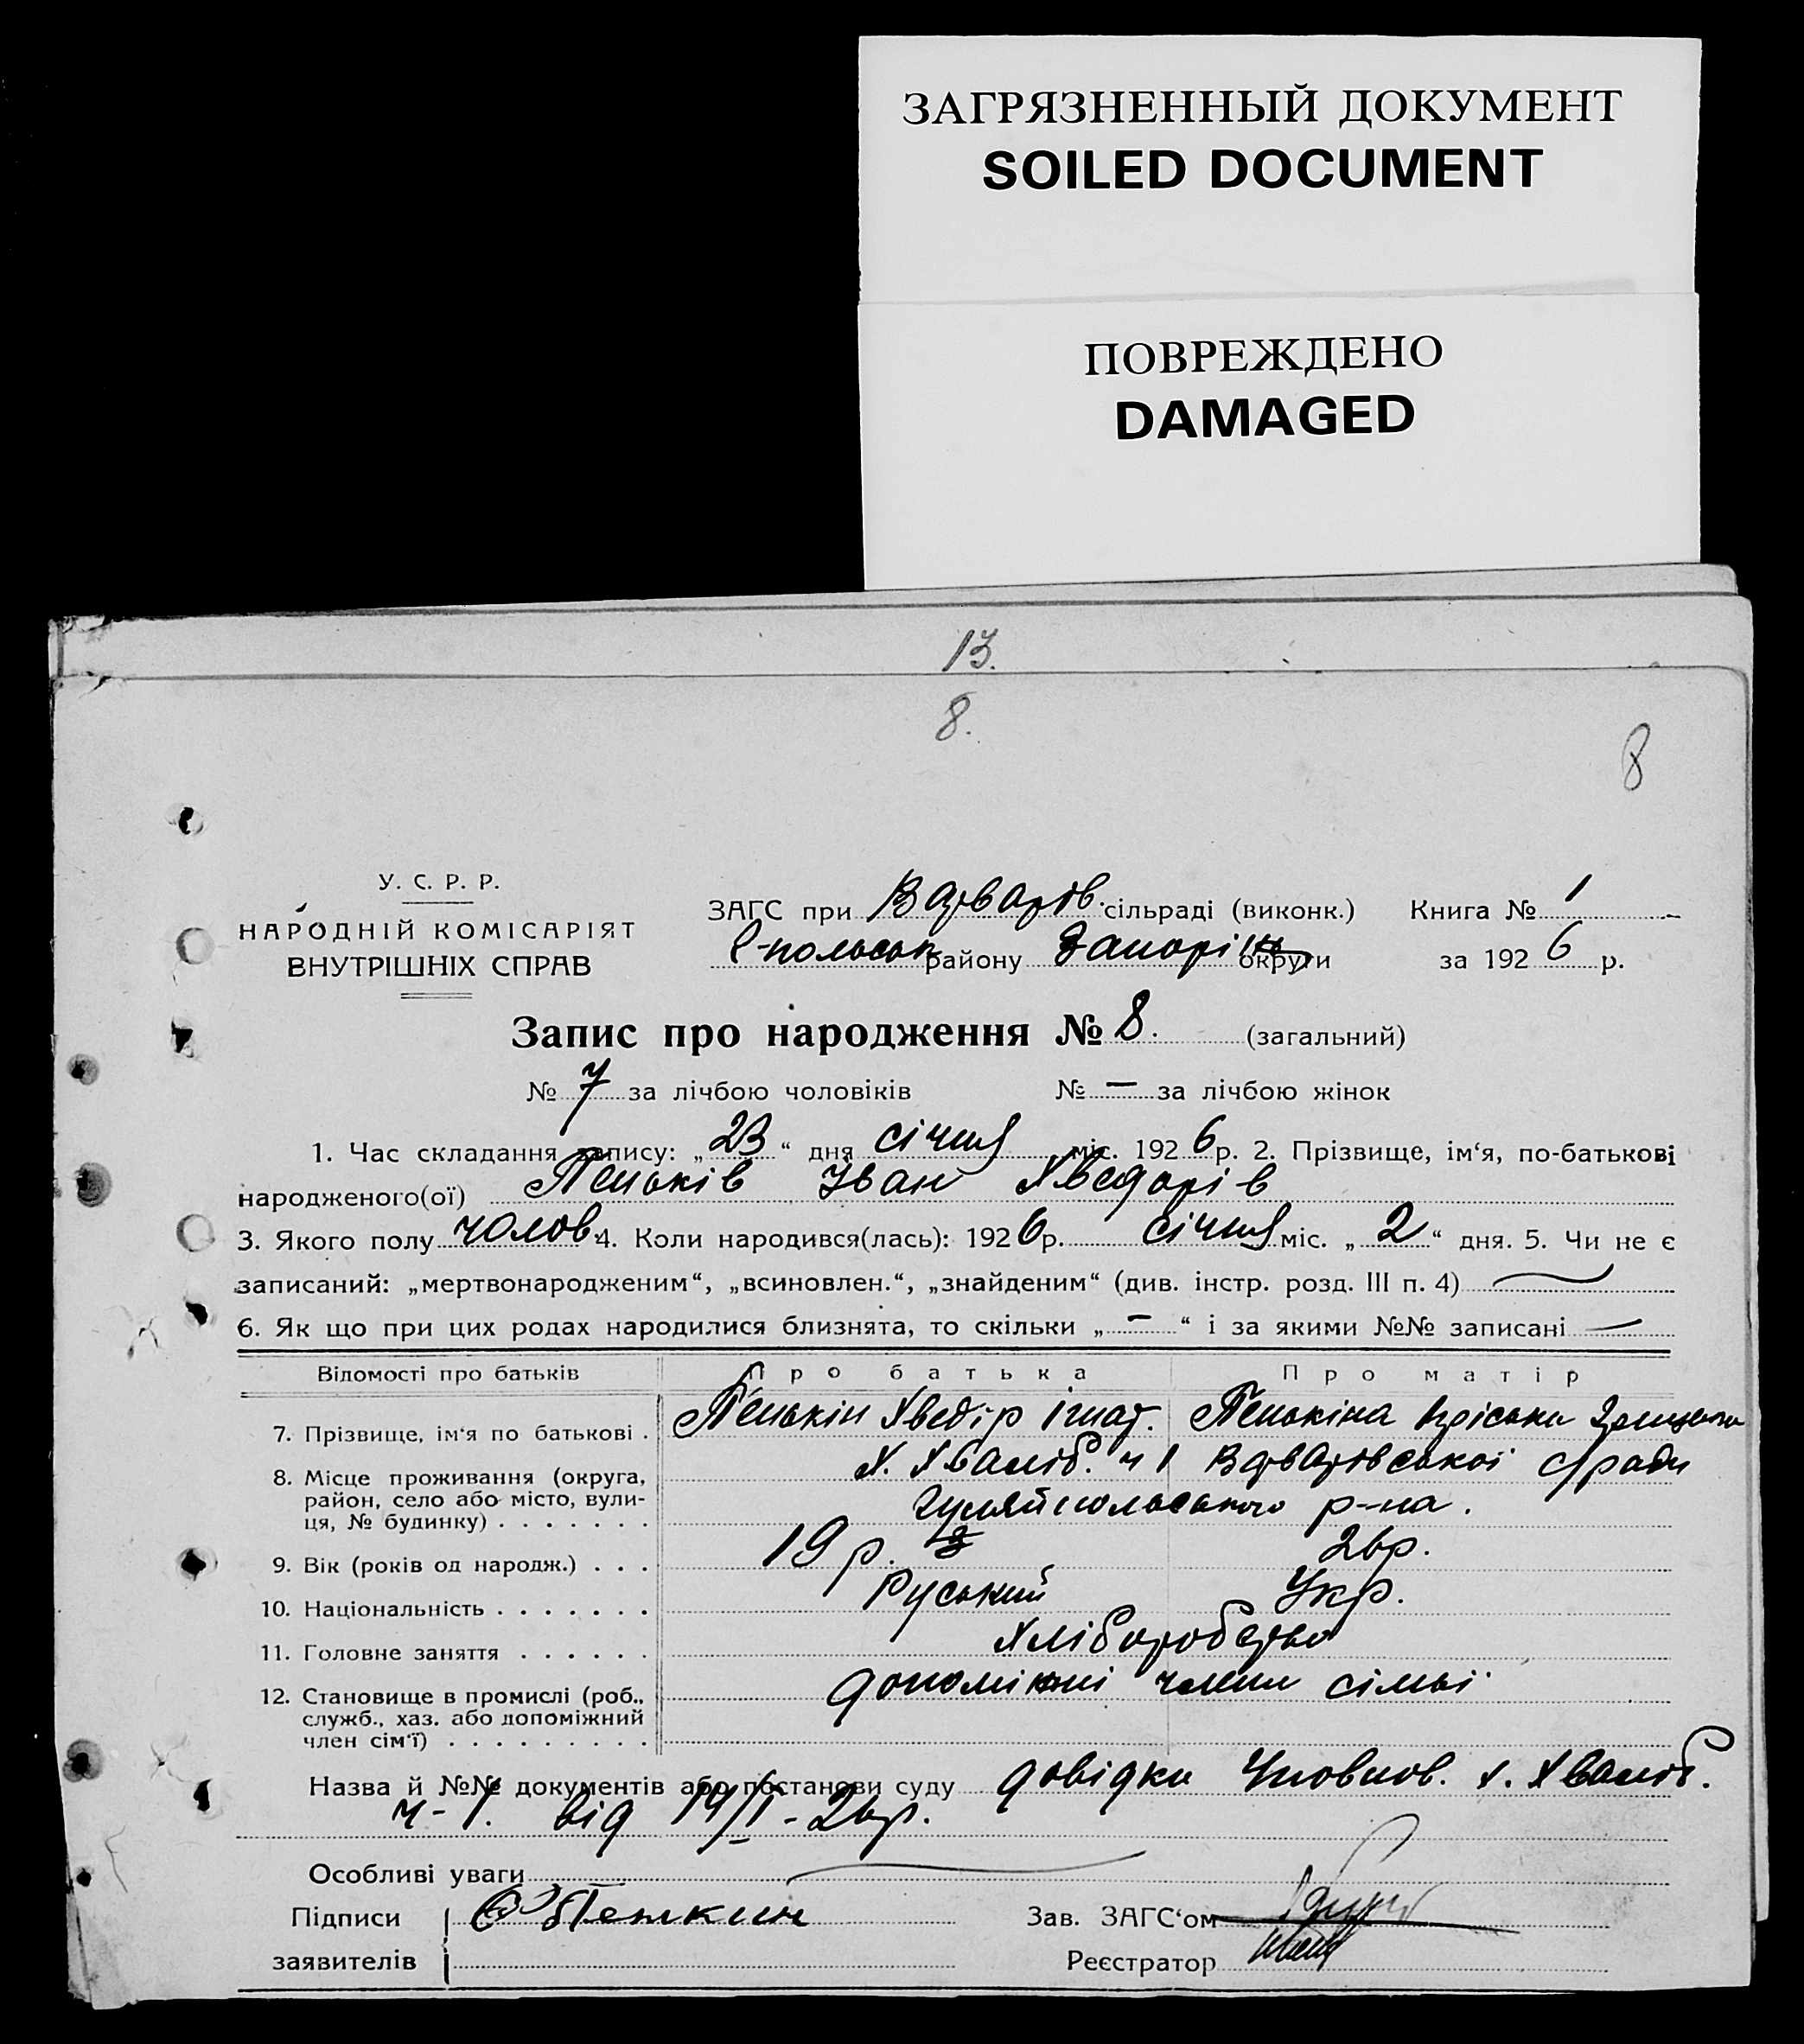 ЗАГРЯЗНЕННЫЙ ДОКУМЕНТ
SOILED DOCUMENT
ПОВРЕЖДЕНО
DAMAGED
13.
8.
8
У. С. Р. Р.
НАРОДНІЙ КОМІСАРІЯТ
ВНУТРІШНІХ СПРАВ
ЗАГС при Варварів. сільраді (виконк.) Книга № 1
району Запорі округи за 1926 р.
Запис про народження № 8. (загальний)
№ 7 за лічбою чоловіків № — за лічбою жінок
1. Час складання запису: „23“ дня січня міс. 1926 р. 2. Прізвище, ім‘я, по-батькові
народженого(ої) Пеньків Іван Хведорів
3. Якого полу чолов. 4. Коли народився(лась): 1926 р. січня міс. „2“ дня. 5. Чи не є
записаний: „мертвонародженим“, „всиновлен.“, „знайденим“ (див. інстр. розд. III п. 4) —
6. Як що при цих родах народилися близнята, то скільки „—“ і за якими №№ записані —
Відомості про батьків Про батька Про матір
7. Прізвище, ім‘я по батькові . Пенькін Хведір Ігнат. Пенькіна Пріська
8. Місце проживання (округа, х. Хваліб. ч 1 Варварівської с/ради
район, село або місто, вули- Гуляйпольського р-на.
ця, № будинку) . . . . . . .
9. Вік (років од народж.) . . . 19 р. 26р.
10. Національність . . . . . . . Руський Укр.
11. Головне заняття . . . . . . Хліборобство
12. Становище в промислі (роб., допоміжні члени сімьї
служб., хаз. або допоміжний
член сім‘ї) . . . . . . . . .
Назва й №№ документів або постанови суду довідка Уповнов. х. Хваліб.
ч-1. від 14/I-26р.
Особливі уваги —
Підписи Пенькин Зав. ЗАГС‘ом
заявителів Реєстратор